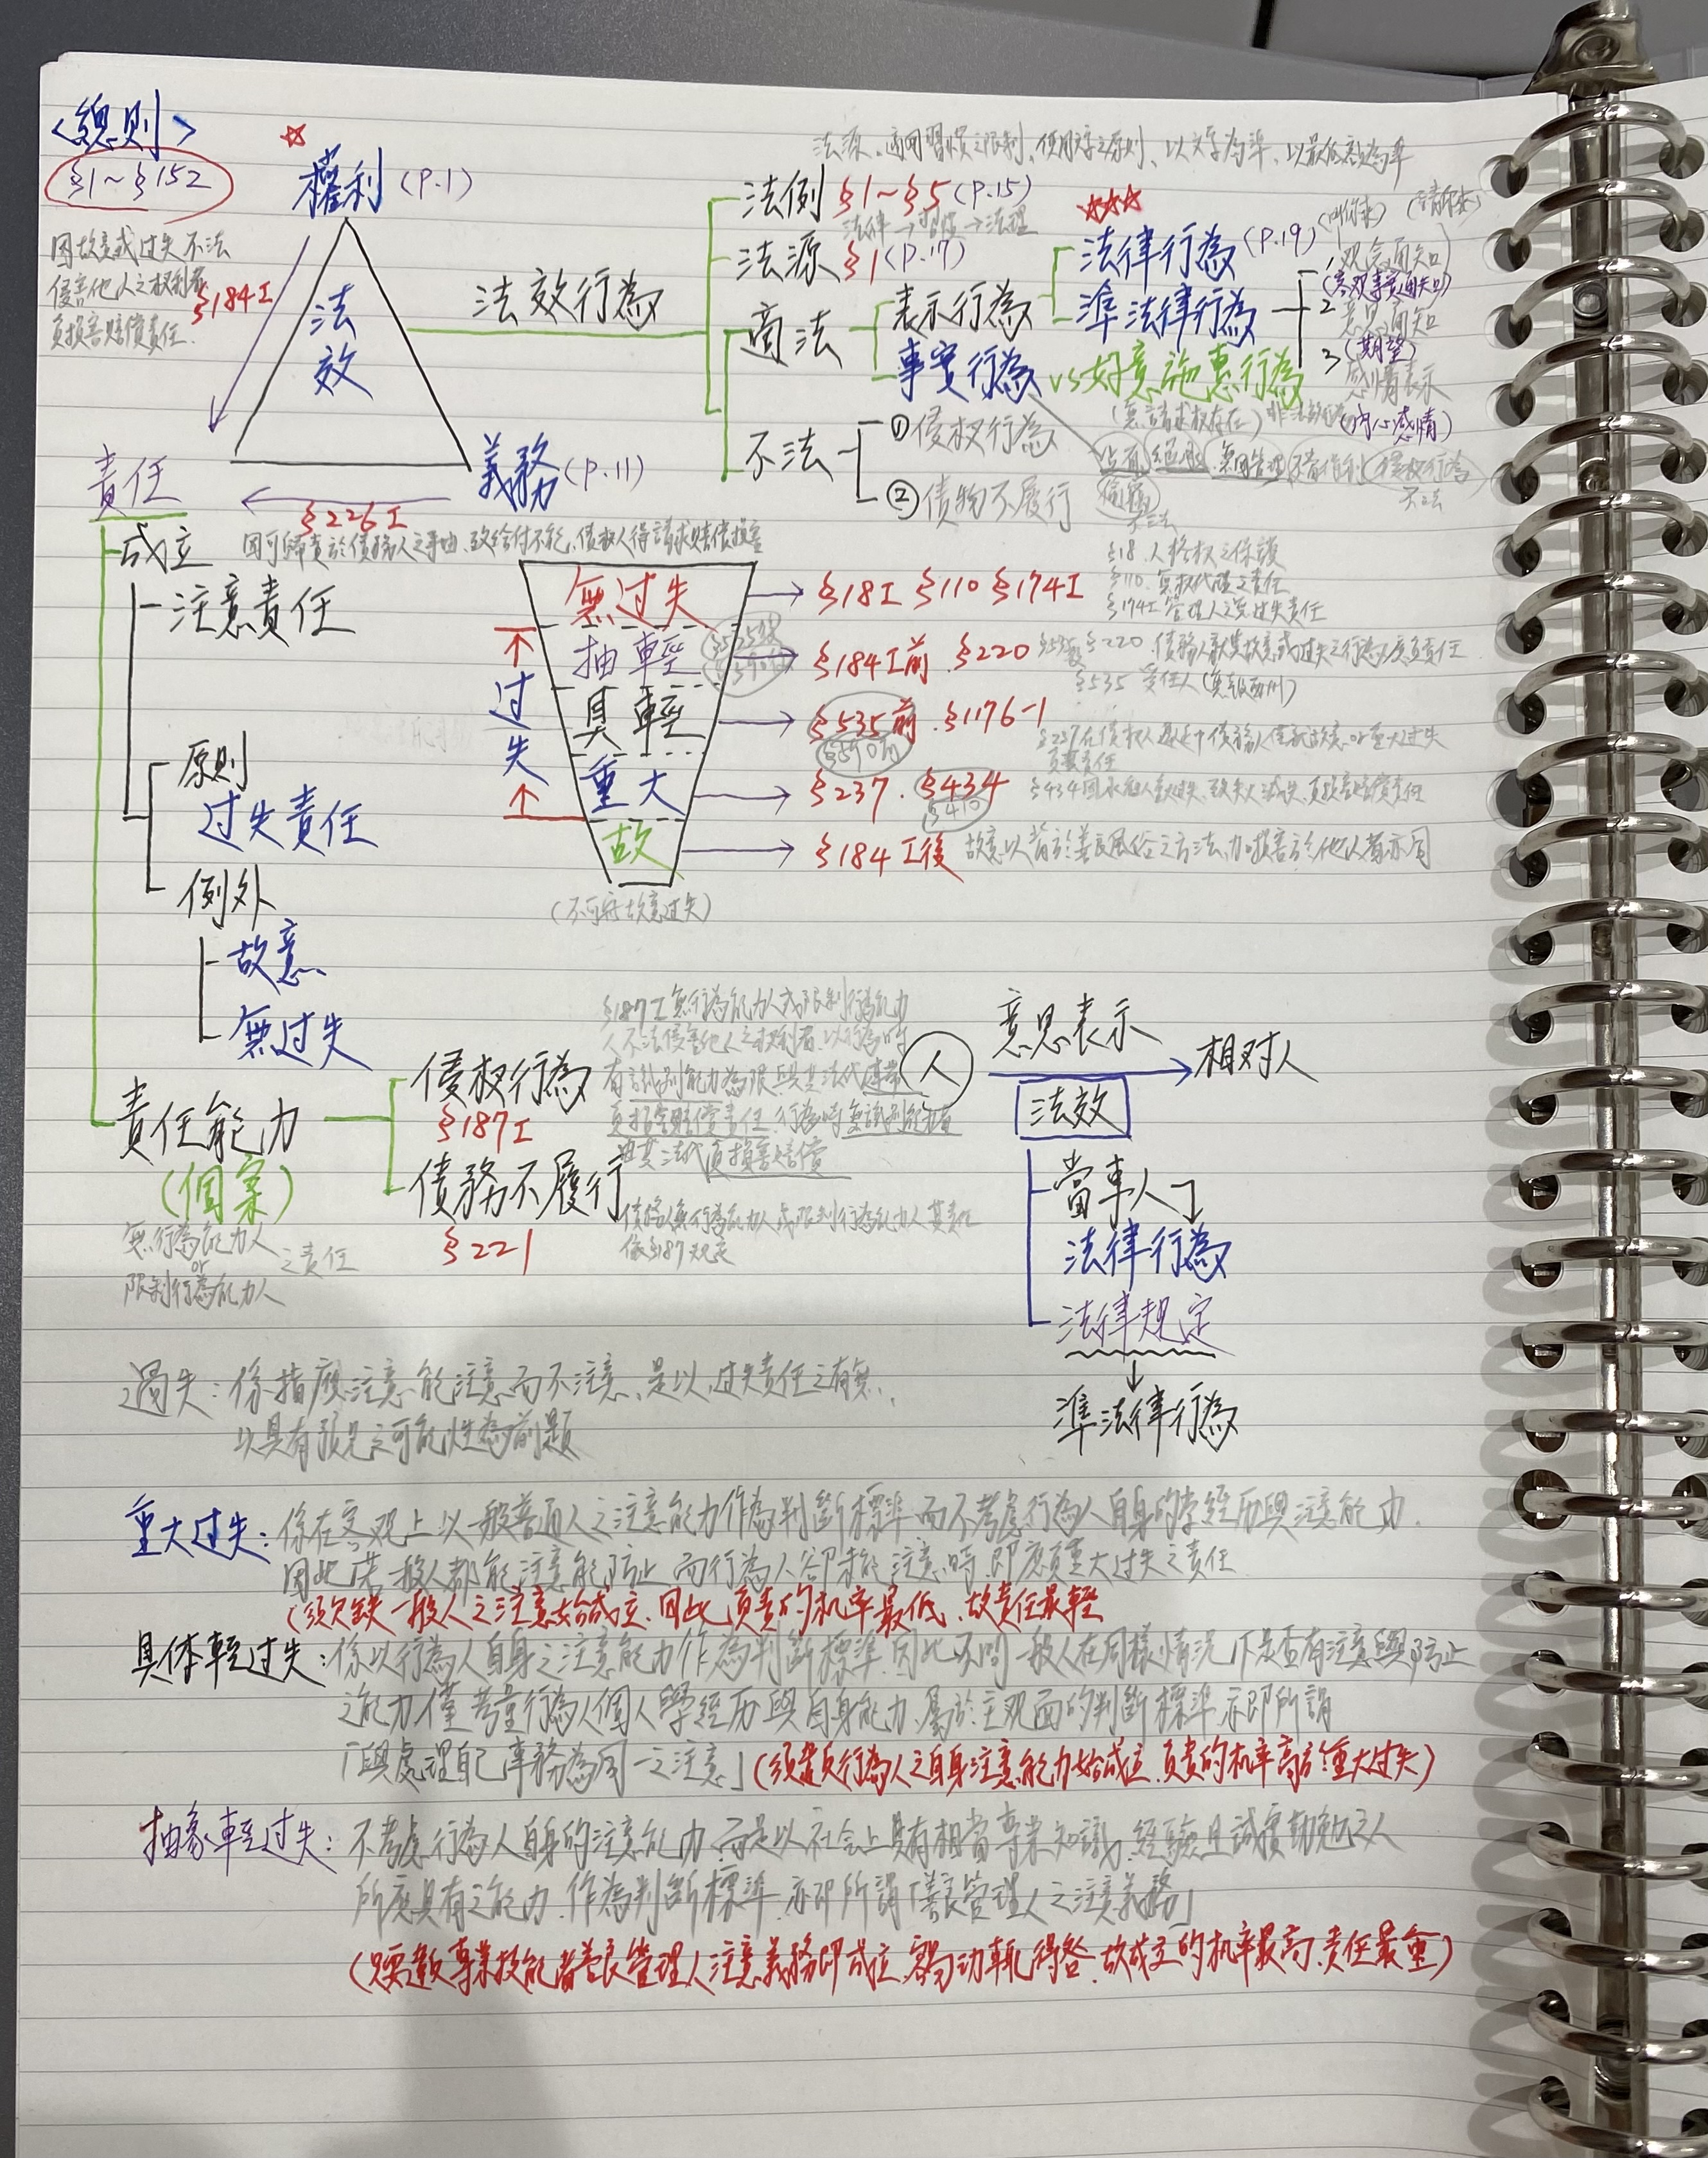 <總則>
§1~§152
權利(P.1)
因故意或过失不法
侵害他人之权利者
負損害賠償責任.
§184I
法效
法效行為
法源、適用習慣之限制、使用文字之原則、以文字為準、以最低額為準
法例 §1~§5(P.15)
法律→習慣→法理
法源 §1(P.17)
適法
表示行為
法律行為(P.19)
準法律行為
1 观念通知
(客观事實通知)
2 意思通知
(期望)
3 感情表示
(内心感情)
事實行為 vs 好意施惠行為
(無請求权存在)
不法
①侵权行為
②債物不履行
不法
義務(P.11)
責任
§226I
因可歸責於債務人之事由,致給付不能,債权人得請求賠償損害
成立
注意責任
原則
过失責任
例外
故意
無过失
过失
無过失 → §18I §110 §174I
§18.人格权之保護
§110.無权代理之責任
§174I管理人之無过失責任
抽輕 → §184I前.§220
§220.債務人就其故意或过失之行為,應負責任
§535 受任人
具輕 → §535前.§1176-1
§590前
重大 → §237.§434
§410
§237在債权人遲延中債務人僅就故意or重大过失
負其責任
§434因承租人重大过失,致失火滅失,負損害賠償責任
故 → §184I後 故意以背於善良風俗之方法,加損害於他人者亦同
責任能力
(個案)
無行為能力人
or
限制行為能力人
之責任
侵权行為
§187I
§187I無行為能力人或限制行為能力
人不法侵害他人之权利者,以行為時
有識別能力為限,與其法代連帶
負損害賠償責任.行為時無識別能力者
由其法代負損害賠償
債務不履行
§221
債務人無行為能力人或限制行為能力人其責任
依§187規定
人
意思表示
相对人
法效
當事人
法律行為
法律規定
準法律行為
過失:係指應注意能注意而不注意、是以,过失責任之有無,
以具有預見之可能性為前題
重大过失:係在客观上以一般普通人之注意能力作為判斷標準而不考慮行為人自身的学經历與注意能力.
因此若一般人都能注意能防止而行為人卻未能注意時,即應負重大过失之責任
(須欠缺一般人之注意始成立.因此負責的机率最低、故責任最輕
具体輕过失:係以行為人自身之注意能力作為判斷標準.因此不問一般人在同樣情況下是否有注意與防止
之能力,僅考量行為人個人學經历與自身能力,屬於主观面的判斷標準.亦即所謂
「與處理自己事務為同一之注意」(須違反行為人之自身注意能力始成立.負責的机率高於重大过失)
抽象輕过失:不考慮行為人自身的注意能力,而是以社会上具有相當專業知識、經驗且誠實勤勉之人
所應具有之能力.作為判斷標準.亦即所謂「善良管理人之注意義務」